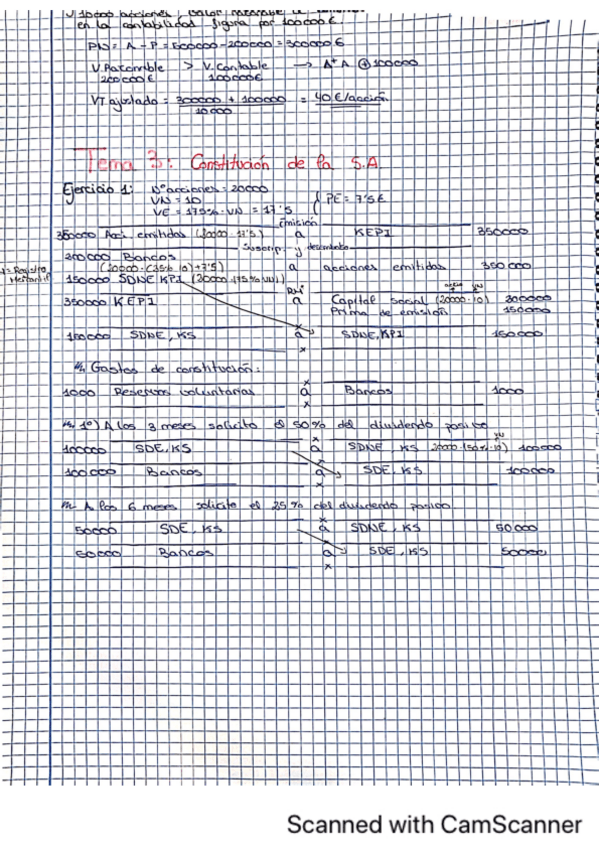 en la contabilidad figura por 100000€.
PN = A - P = 500000 - 200000 = 300000 €
V. Razonable > V. Contable → A*A @ 100000
200000€ 100000€
VT ajustado = 300000 + 100000 = 40 €/acción
10000
Tema 3: Constitución de la S.A.
Ejercicio 1: Nº acciones = 20000
VN = 10
VE = 175% · VN = 17'5
PE = 7'5€
Emisión
350000 Acc. emitidas (20000 · 17'5) a KEPI 350000
Suscrip. y desembolso
200000 Bancos
(20000 · (25% · 10) + 7'5) a acciones emitidas 350000
Registro Mercantil
150000 SDNE KPI (20000 · (75% · VN))
350000 KEPI a Capital Social (20000 · 10) 200000
Prima de emisión 150000
150000 SDNE, KS a SDNE, KPI 150000
Gastos de constitución:
1000 Reservas voluntarias a Bancos 1000
1º) A los 3 meses solicita el 50% del dividendo pasivo
100000 SDE, KS a SDNE KS 20000 · (50% · 10) 100000
100000 Bancos a SDE, KS 100000
A los 6 meses solicita el 25% del dividendo pasivo
50000 SDE, KS a SDNE, KS 50000
50000 Bancos a SDE, KS 50000
Scanned with CamScanner